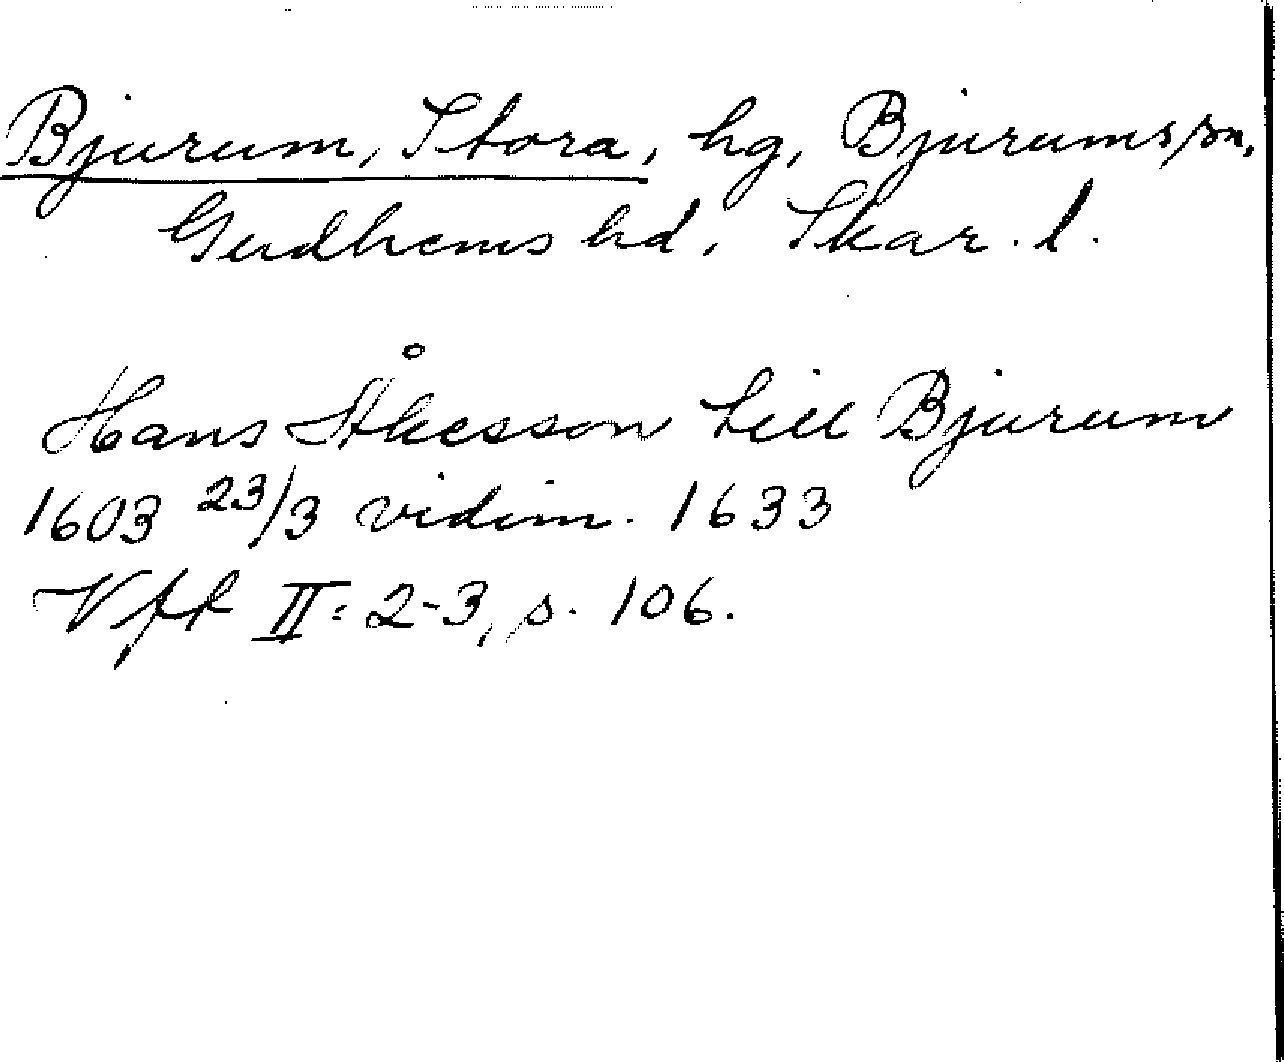 Bjurum, Stora, hg, Bjurums sn,
Gudhems hd, Skar. l.
Hans Åkesson till Bjurum
1603 23/3 vidim. 1633
Vfft II: 2-3, s. 106.